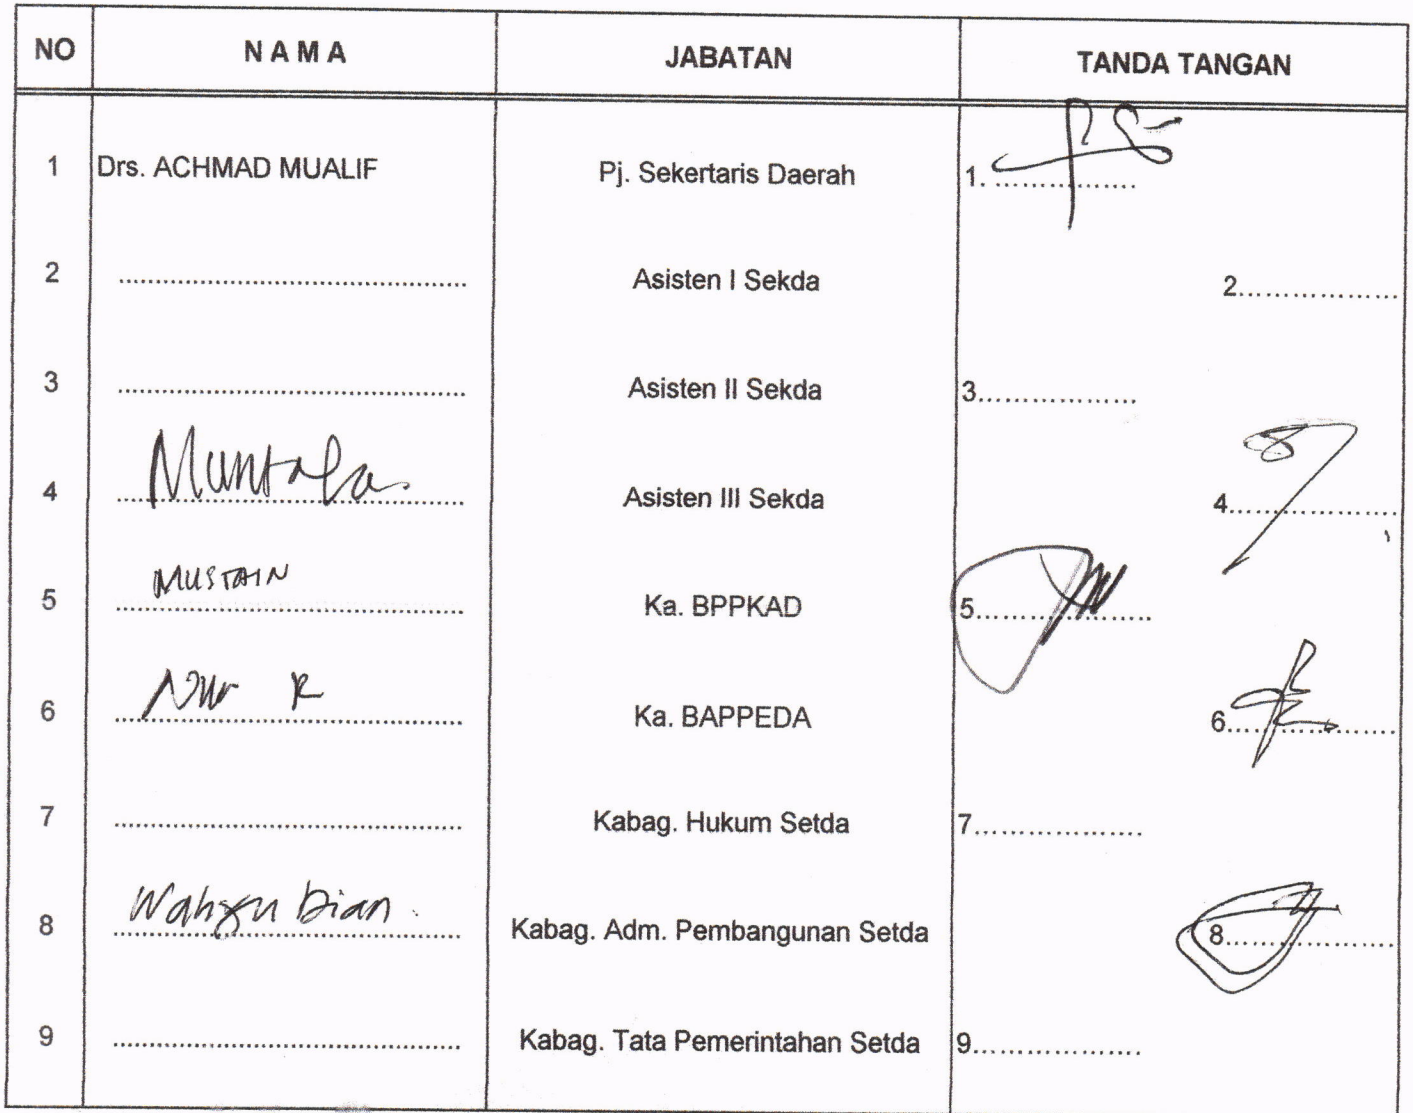 NO NAMA JABATAN TANDA TANGAN
1 Drs. ACHMAD MUALIF Pj. Sekertaris Daerah 1. ................
2 ........................................ Asisten I Sekda 2..................
3 ........................................ Asisten II Sekda 3..................
4 ........................................ Asisten III Sekda 4..................
MUSTAIN
5 ........................................ Ka. BPPKAD 5..................
Nur K
6 ........................................ Ka. BAPPEDA 6..................
7 ........................................ Kabag. Hukum Setda 7..................
Wahyu Dian
8 ........................................ Kabag. Adm. Pembangunan Setda 8..................
9 ........................................ Kabag. Tata Pemerintahan Setda 9..................